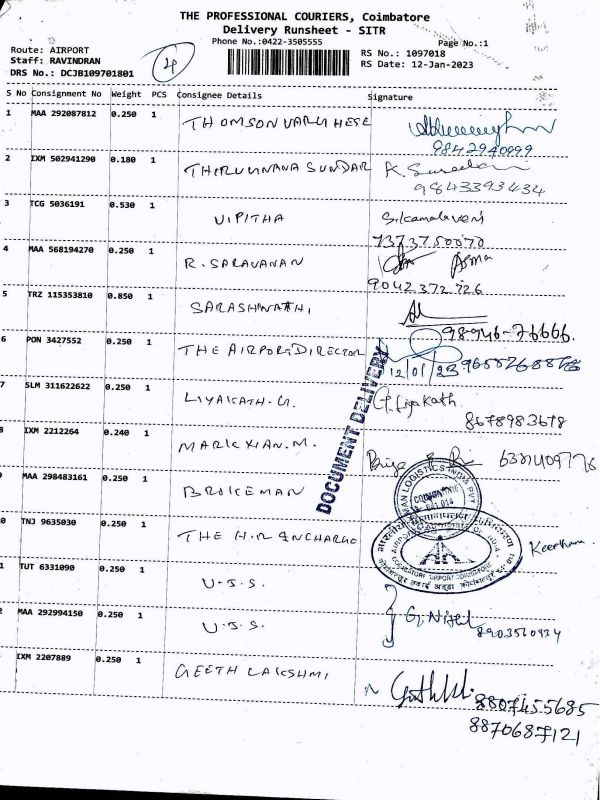 THE PROFESSIONAL COURIERS, Coimbatore
Delivery Runsheet - SITR
Phone No.:0422-3505555
Page No.:1
Route: AIRPORT
Staff: RAVINDRAN
DRS No.: DCJB109701801
4
RS No.: 1097018
RS Date: 12-Jan-2023
S No Consignment No Weight PCS Consignee Details Signature
1 MAA 292087812 0.250 1 THOMSON VARUHESE
9842940999
2 IXM 502941290 0.180 1 THIRUUNANA SUNDAR K.
9843393434
3 TCG 5036191 0.530 1 VIPITHA S.kamalaveni
7373750070
4 MAA 568194270 0.250 1 R. SARAVANAN Asma
9042372726
5 TRZ 115353810 0.850 1 SARASHWATHI
98946-76666.
6 PON 3427552 0.250 1 THE AIRPORT DIRECTOR
12/01/23
DOCUMENT DELIVERY
7 SLM 311622622 0.250 1 LIYAKATH.G. Liyakath.
8678983678
8 IXM 2212264 0.240 1 MARKXIAN.M. Priya
6381409776
MAA 298483161 0.250 1 BROKEMAN
LOGISTICS INDIA PVT
COIMBATORE
641 014
0 TNJ 9635030 0.250 1 THE H.R INCHARGE Keerthana
AIRPORTS AUTHORITY OF INDIA
COIMBATORE AIRPORT COIMBATORE
1 TUT 6331090 0.250 1 U.S.S.
2 MAA 292994150 0.250 1 U.S.S. G. Nijel
8903560934
IXM 2207889 0.250 1 GEETH LAKSHMI
8807455685
8870687121